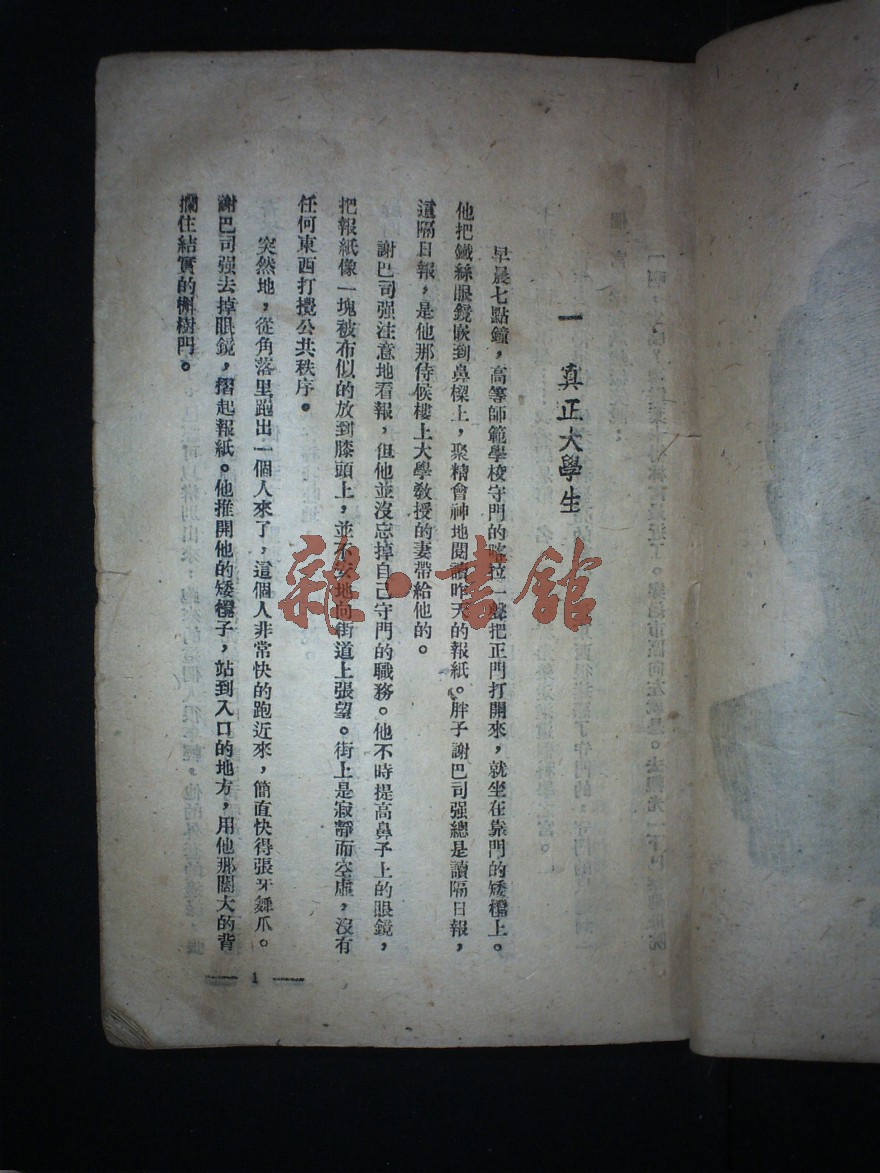 一 真正大學生
早晨七點鐘，高等師範學校守門的喀拉一聲把正門打開來，就坐在靠門的矮櫈上。
他把鐵絲眼鏡嵌到鼻樑上，聚精會神地閱讀昨天的報紙。胖子謝巴司强總是讀隔日報，
這隔日報，是他那侍候樓上大學教授的妻帶給他的。
謝巴司强注意地看報，但他並沒忘掉自己守門的職務。他不時提高鼻子上的眼鏡，
把報紙像一塊被布似的放到膝頭上，並不安地向街道上張望。街上是寂靜而空虛，沒有
任何東西打攪公共秩序。
突然地，從角落里跑出一個人來了，這個人非常快的跑近來，簡直快得張牙舞爪。
謝巴司强去掉眼鏡，摺起報紙。他推開他的矮櫈子，站到入口的地方，用他那闊大的背
攔住結實的槲樹門。
— 1 —
雜·書館